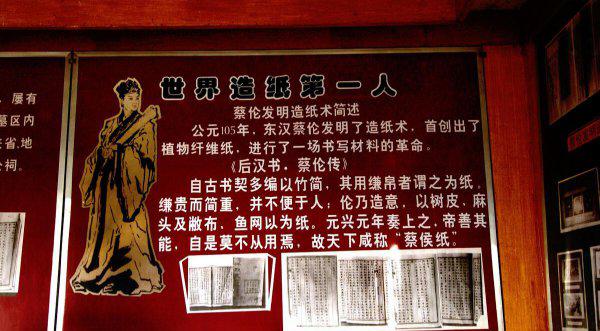 世界造纸第一人
蔡伦发明造纸术简述
公元105年，东汉蔡伦发明了造纸术，首创出了
植物纤维纸，进行了一场书写材料的革命。
《后汉书，蔡伦传》
自古书契多编以竹简，其用缣帛者谓之为纸。
缣贵而简重，并不便于人；伦乃造意，以树皮，麻
头及敝布，鱼网以为纸。元兴元年奏上之，帝善其
能，自是莫不从用焉，故天下咸称“蔡侯纸”。
，屡有
墓区内
省.地
公祠。